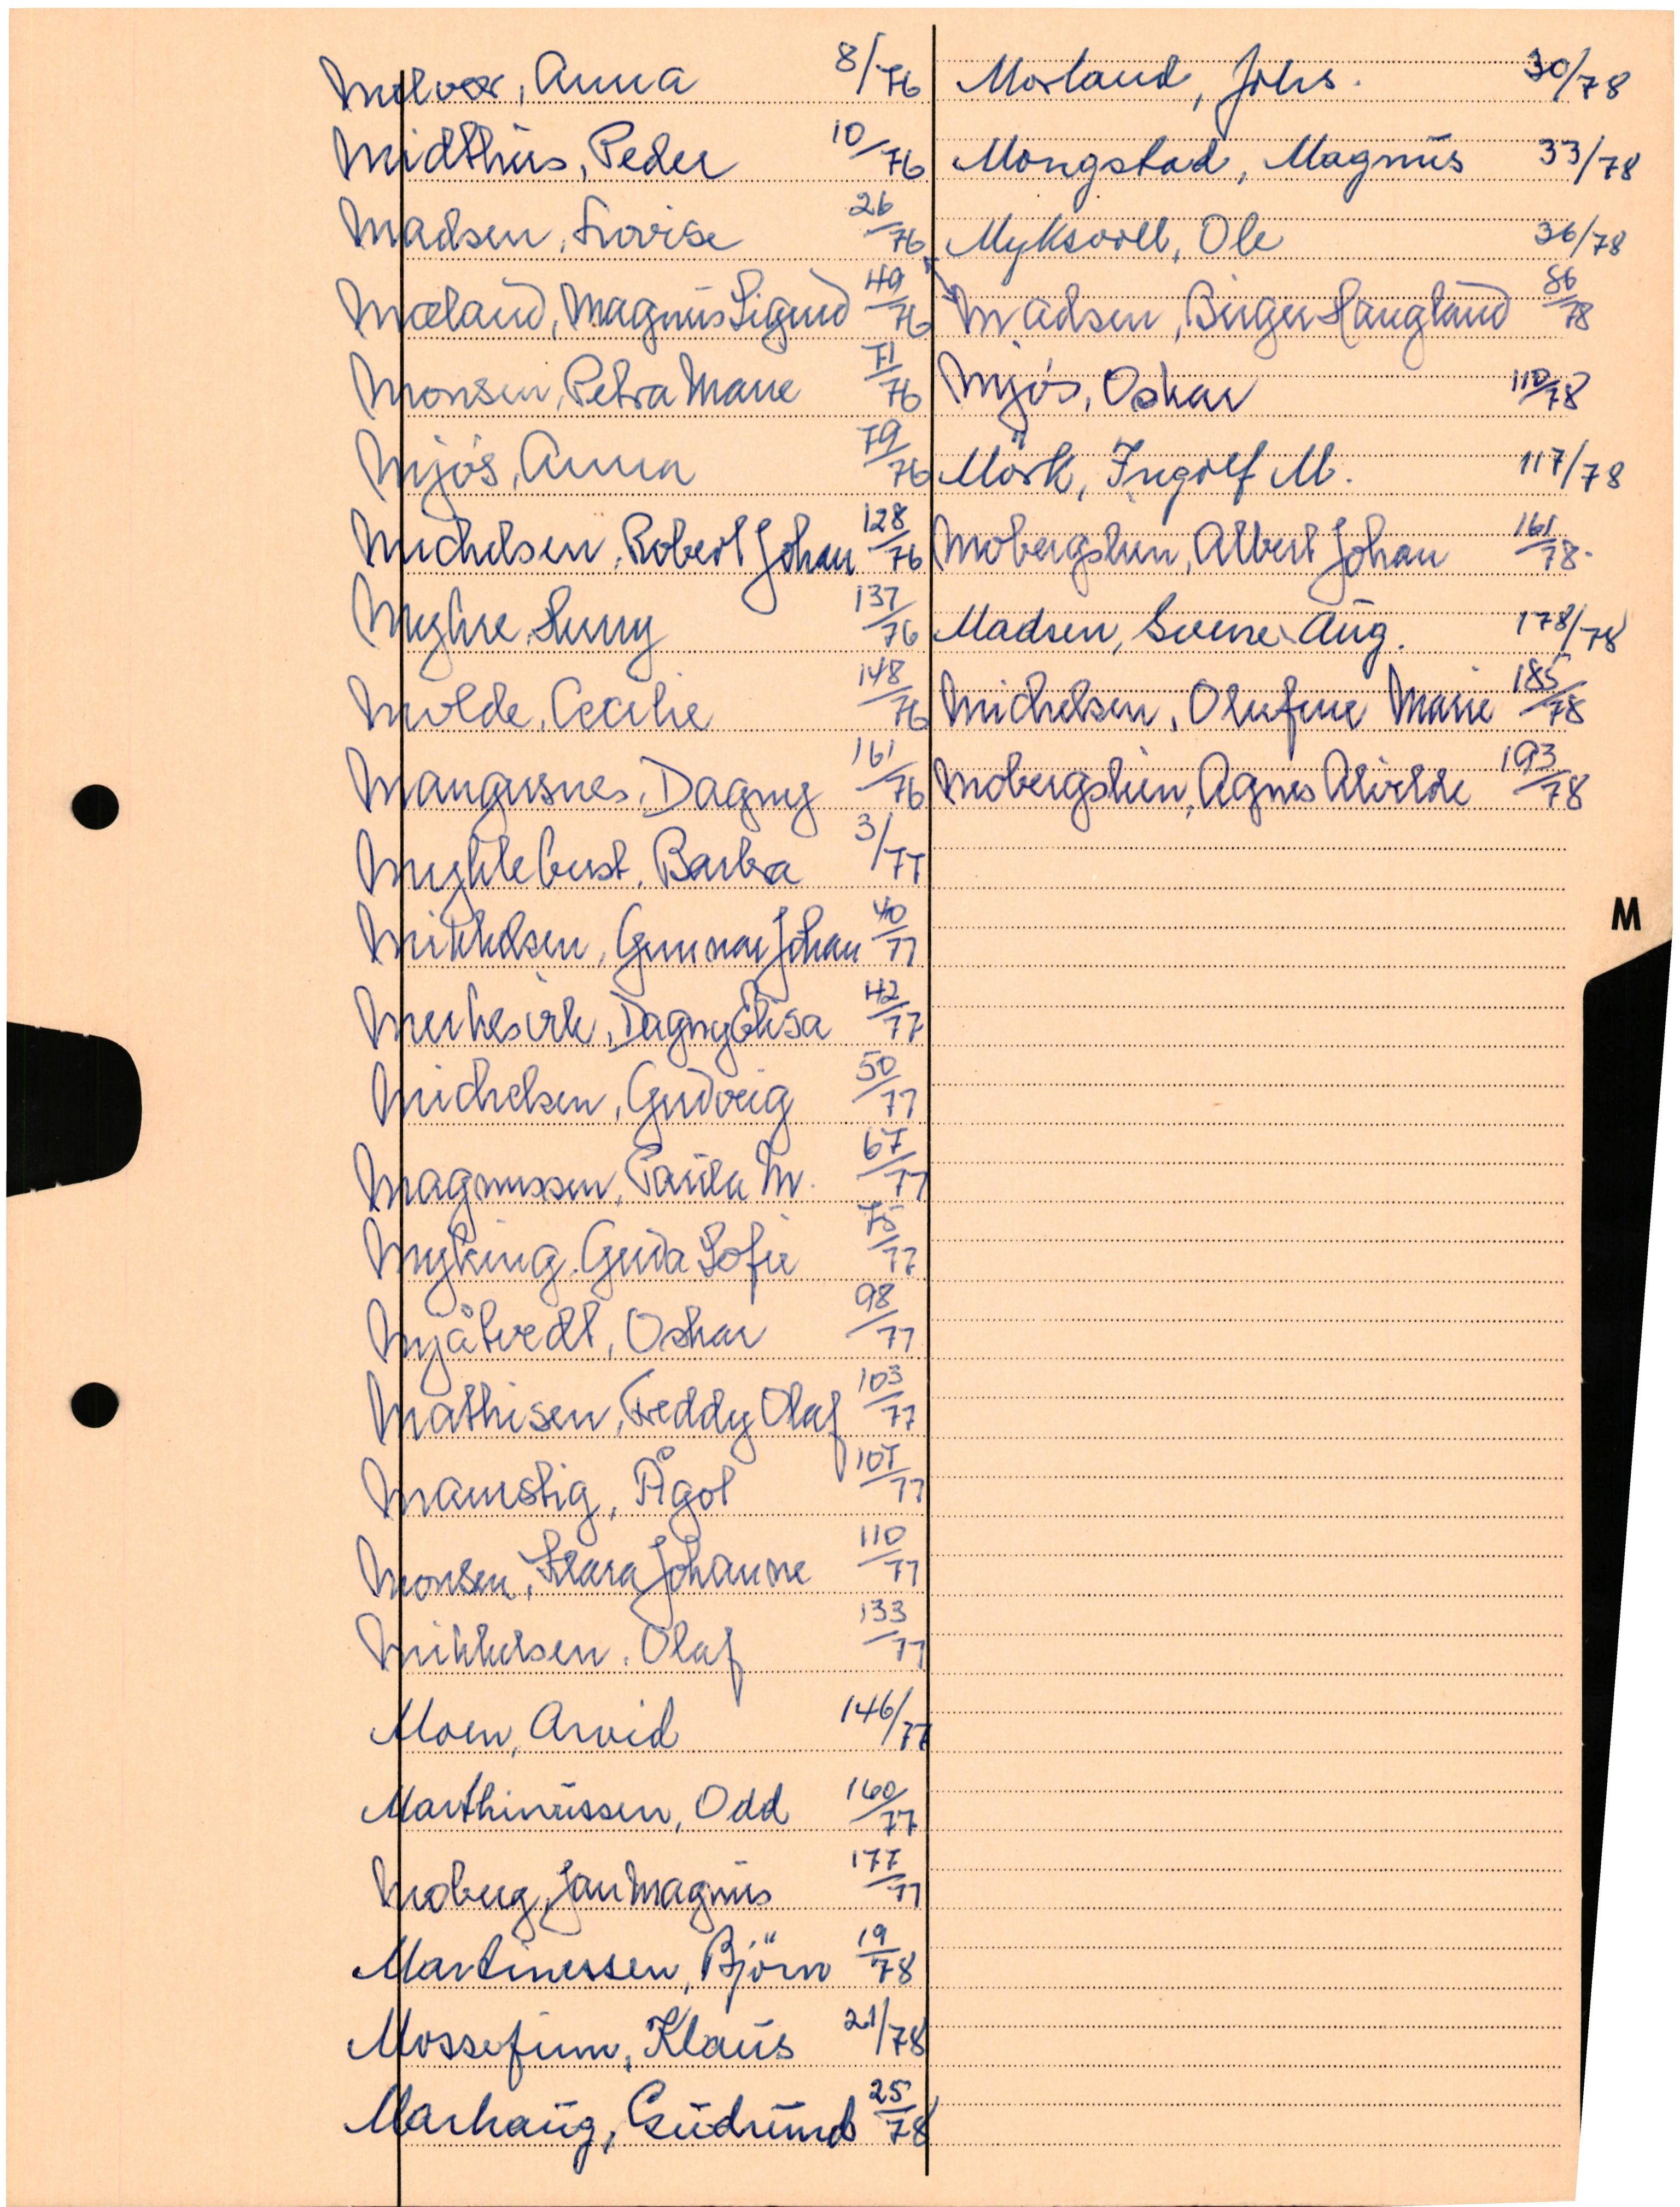 Melvær, Anna 8/76
Midthus, Peder 10/76
Madsen, Lovise 26/76
Mæland, Magnus Sigurd 49/76
Monsen, Petra Marie 71/76
Mjøs, Anna 79/76
Michelsen, Robert Johan 128/76
Myhre, 137/76
Molde, Cecilie 148/76
Mangersnes, Dagny 161/76
Myklebust, Barbra 3/77
Mikkelsen, Gunnar Johan 40/77
Dagny Elisa 42/77
Michelsen, Gudveig 50/77
Magnussen, Paula M. 67/77
Myking, Guda Sofie 75/77
Mjåtvedt, Oskar 98/77
Mathisen, Freddy Olaf 103/77
Ågot 107/77
Monsen, Klara Johanne 110/77
Mikkelsen, Olaf 133/77
Moen, Arvid 146/77
Marthinussen, Odd 160/77
Moberg, Jan Magnus 177/77
Martinessen, Björn 19/78
Mossefinn, Klaus 21/78
Marhaug, Gudmund 25/78
Morland, Johs. 30/78
Mongstad, Magnus 33/78
Myksvoll, Ole 36/78
Madsen, Birger Haugland 86/78
Mjøs, Oskar 110/78
Mörk, Ingolf M. 117/78
Mobergslien, Albert Johan 161/78
Madsen, Sverre Aug. 178/78
Michelsen, Olufine Marie 185/78
Mobergslien, Agnes Alvilde 193/78
M